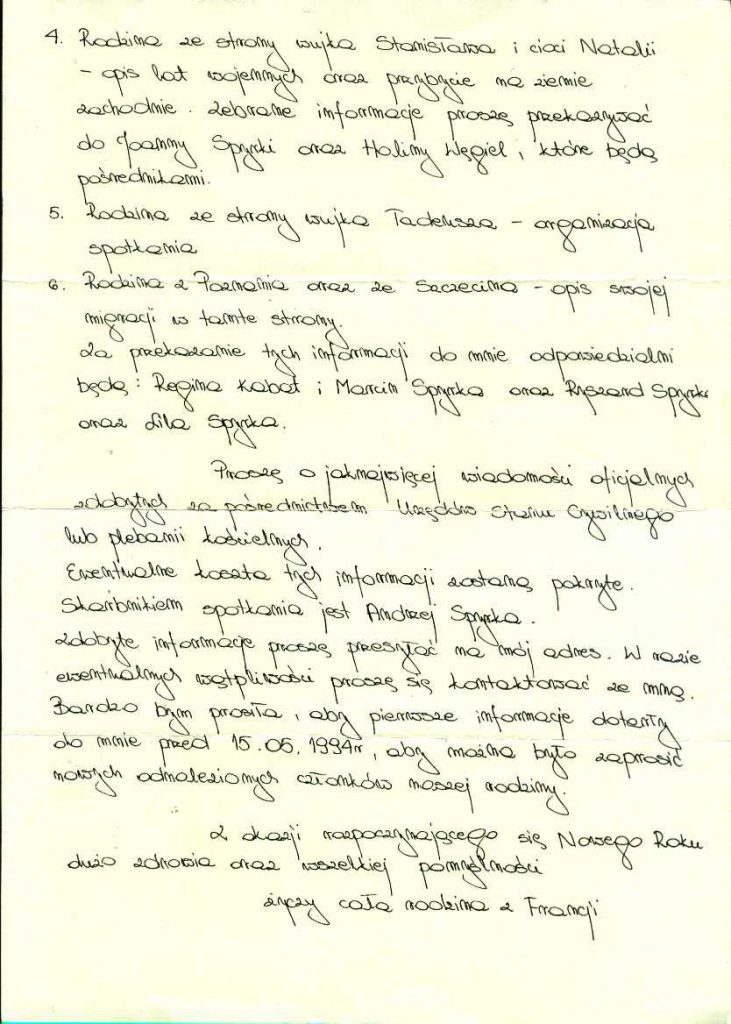 4. Rodzina ze strony wujka Stanisława i cioci Natalii
- opis lat wojennych oraz przybycie na ziemie
zachodnie. Zebrane informacje proszę przekazywać
do Joanny Spyrki oraz Haliny Węgiel, które będą
pośrednikami.
5. Rodzina ze strony wujka Tadeusza - organizacja
spotkania
6. Rodzina z Poznania oraz ze Szczecina - opis swojej
migracji w tamte strony.
Za przekazanie tych informacji do mnie odpowiedzialni
będą: Regina Kabat i Marcin Spyrka oraz Ryszard Spyrka
oraz Lila Spyrka.
Proszę o jaknajwięcej wiadomości oficjalnych
zdobytych za pośrednictwem Urzędów Stanu Cywilnego
lub plebanii kościelnych.
Ewentualne koszta tych informacji zostaną pokryte.
Skarbnikiem spotkania jest Andrzej Spyrka.
Zdobyte informacje proszę przesyłać na mój adres. W razie
ewentualnych wątpliwości proszę się kontaktować ze mną.
Bardzo bym prosiła, aby pierwsze informacje dotarły
do mnie przed 15.06.1994r, aby można było zaprosić
nowych odnalezionych członków naszej rodziny.
Z okazji rozpoczynającego się Nowego Roku
dużo zdrowia oraz wszelkiej pomyślności
życzy cała rodzina z Francji